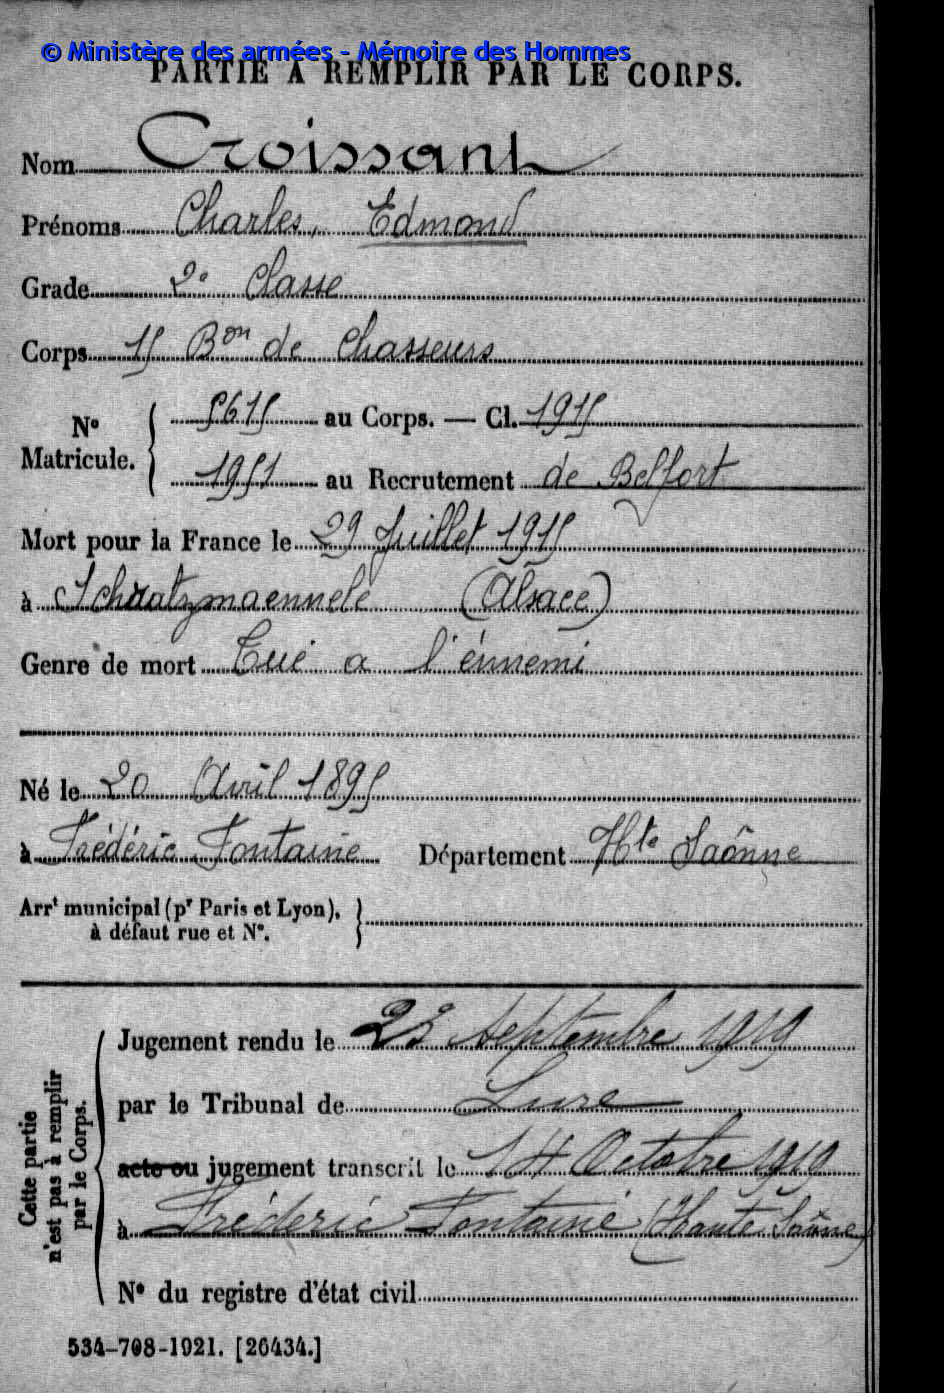 © Ministère des armées - Mémoire des Hommes
PARTIE À REMPLIR PAR LE CORPS.
Nom Croissant
Prénoms Charles, Edmond
Grade 2e Classe
Corps 15 Bon de Chasseurs
No Matricule. { 5615 au Corps. — Cl. 1915
1951 au Recrutement de Belfort
Mort pour la France le 29 Juillet 1915
à Schratzmaennele (Alsace)
Genre de mort Tué a l'énnemi
Né le 20 Avril 1895
à Frédéric Fontaine Département Hte Saônne
Arrt municipal (pr Paris et Lyon), à défaut rue et No. }
Cette partie n'est pas à remplir par le Corps. {
Jugement rendu le 23 Septembre 1919
par le Tribunal de Lure
acte ou jugement transcrit le 14 Octobre 1919
à Fréderic Fontaine (Haute Saône)
No du registre d'état civil
534-708-1921. [26434.]